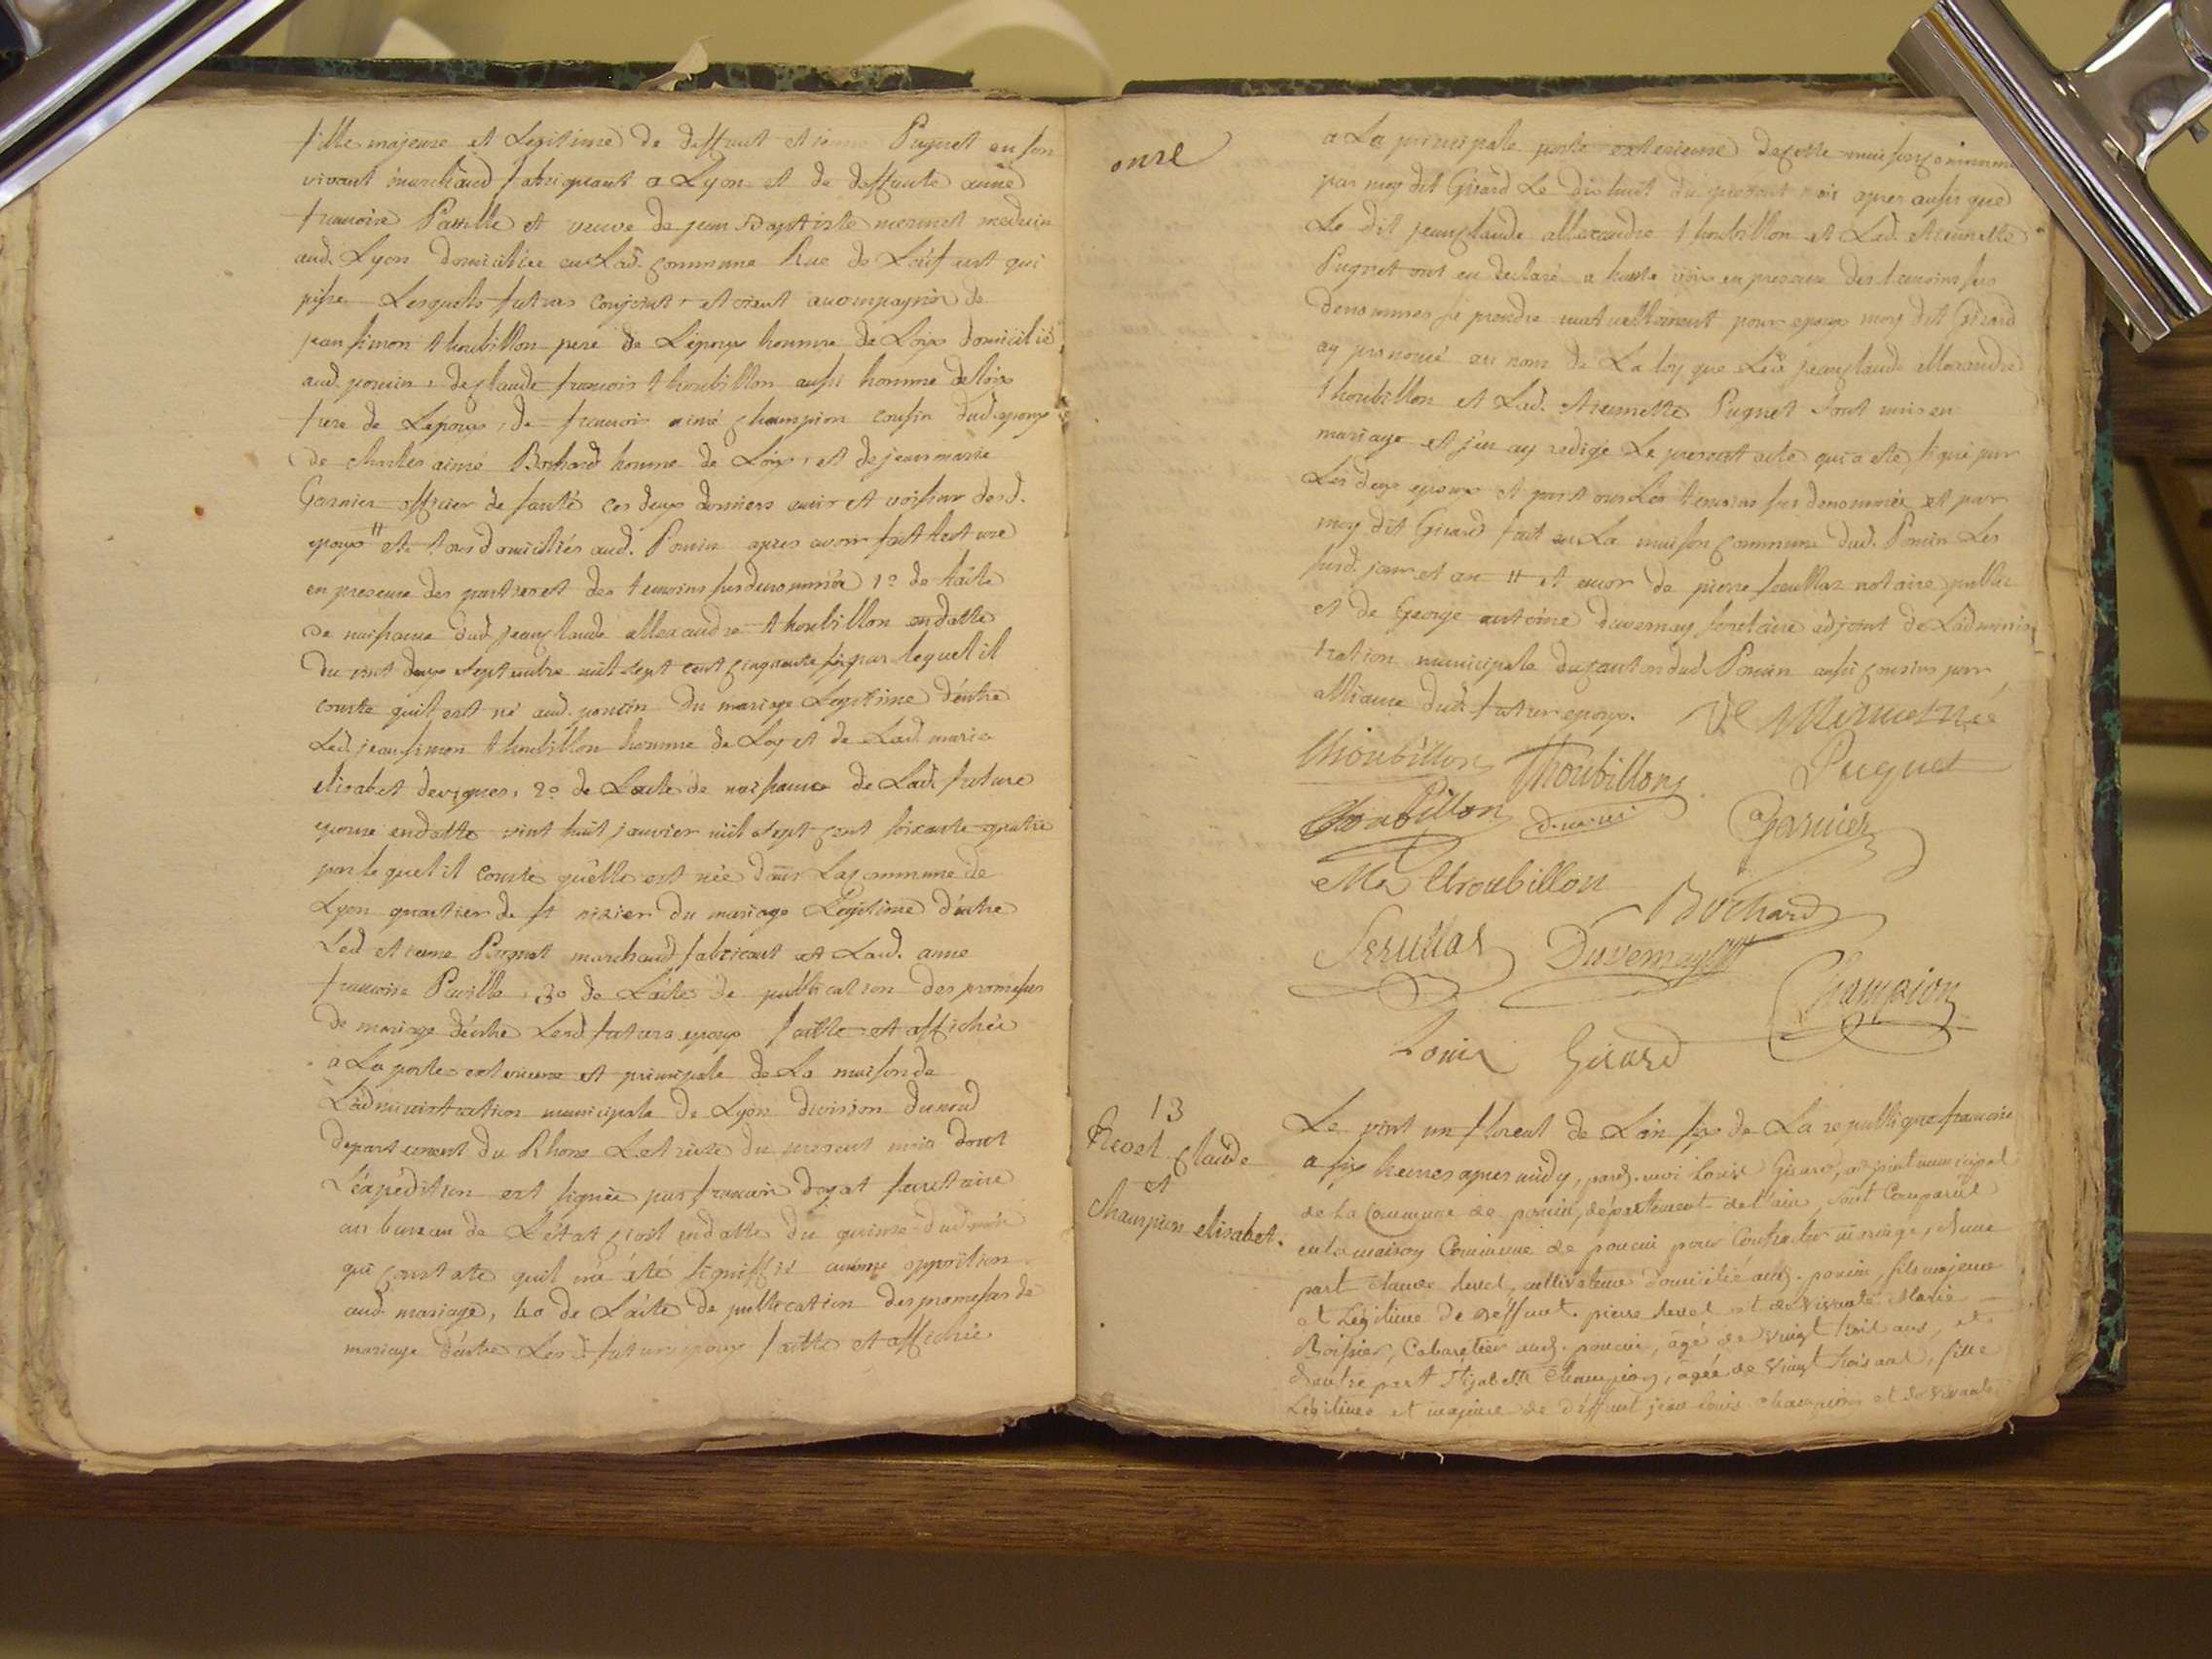 fille majeure et Legitime de deffunt etienne Pugnet en son
vivant marchand fabriquant a Lyon et de deffunte anne
francoise et veuve de jean Baptiste mermet medecin
aud. Lyon domiciliée en Lad. commune Rue de
Lesquels futurs conjoints etoient accompagnés de
jean simon thoubillon pere de Lepoux homme de Loix domicilié
aud. poncin, de claude francois thoubillon aussi homme de loix
frere de Lepoux, de francois aimé champion cousin dud. epoux
de charles aimé Bochard homme de Loix, et de jean marie
Garnier officier de santé ces deux derniers amis et voisins desd.
epoux " et tous domiciliés aud. Poncin apres avoir fait lecture
en presence des parties et des temoins susdenommés 1º de lacte
de naissance dud. jean claude allexandre thoubillon en datte
du vint deux septembre mil sept cent cinquante six par lequel il
conste quil est né aud. poncin du mariage Legitime d'entre
Led. jean simon thoubillon homme de Loy et de Lad. marie
elisabet devignes, 2º de Lacte de naissance de Lad. future
epouse en datte vint huit janvier mil sept cent soixante quatre
par lequel il conste quelle est née dans La commune de
Lyon quartier de st nizier du mariage Legitime d'entre
Led etienne Pugnet marchand fabricant et Lad. anne
francoise 3º de Lacte de publication des promesses
de mariage d'entre Lesd. futurs epoux faitte et affichée
a La porte exterieure et principale de La maison de
L'administration municipale de Lyon division du nord
departement du Rhone Le treize du present mois dont
L'expedition est signée par francois secretaire
au bureau de L'état civil en datte du quinze dud. mois
qui constate quil n'a été signiffié aucune opposition
aud. mariage, 4º de L'acte de publication des promesses de
mariage d'entre Lesd. futurs epoux faitte et affichée
onze
a La principale porte exterieure de cette maison commune
par moy dit Girard Le dix huit du present mois apres aussi que
Le dit jean claude allexandre thoubillon et Lad. etiennette
Pugnet ont eu declaré a haute voix en presence des temoins sus
denommés se prendre mutuellement pour epoux moy dit Girard
ay prononcé au nom de La loy que Led. jean claude allexandre
thoubillon et Lad. etiennette Pugnet sont unis en
mariage et j'en ay redigé Le present acte qui a eté signé par
Les deux epoux et par tous Les temoins sus denommés et par
moy dit Girard fait en La maison commune dud. Poncin Les
susd. jour et an " et encor de pierre notaire public
et de George antoine duvernay secretaire adjoint de Ladminis
tration municipale du canton dud. Poncin aussi cousins par
alliance dud. futur epoux. Ve Mermet née
Thoubillon Thoubillon Puguet
Thoubillon Garnier
Thoubillon Bochard
Duvernay
Champion
Louis Girard
13
claude
et
champion elisabet.
Le vint un floreal de Lan six de La republique francoise
a six heures apres midy, pard. moi Louis Girard, adjoint municipal
de la Commune de poncin, département de l'ain, sont Comparus
en la maison Commune de poncin pour Contracter mariage, d'une
part Claude cultivateur domicilié aud. poncin, fils majeur
et Légitime de deffunt pierre et de vivante Marie
Cabaretier aud. poncin, agé de vingt huit ans, et
d'autre part Elizabeth Champion, agée de vingt trois ans, fille
Légitime et majeure de deffunt jean louis champion et de vivante